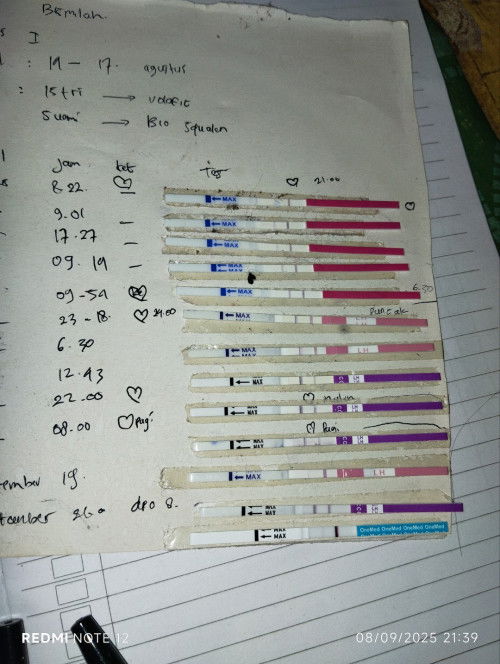 I
: 14 - 17. agustus
: Istri → volafit
Suami → Bio Squalen
Jam
8.22
♡ 21.00
← MAX
9.01 -
← MAX
17.27 -
← MAX
09.19 -
← MAX
09-54
← MAX
6.30
23-18. ♡ 24.00
← MAX
Puncak
6.30
← MAX
LH
12.43
← MAX
LH
22.00 ♡
♡ malam
← MAX
LH
08.00 ♡ Pagi
♡ Pagi
← MAX
LH
19.
← MAX
LH
dpo 8.
← MAX
LH
← MAX
OneMed OneMed OneMed
REDMI NOTE 12
08/09/2025 21:39